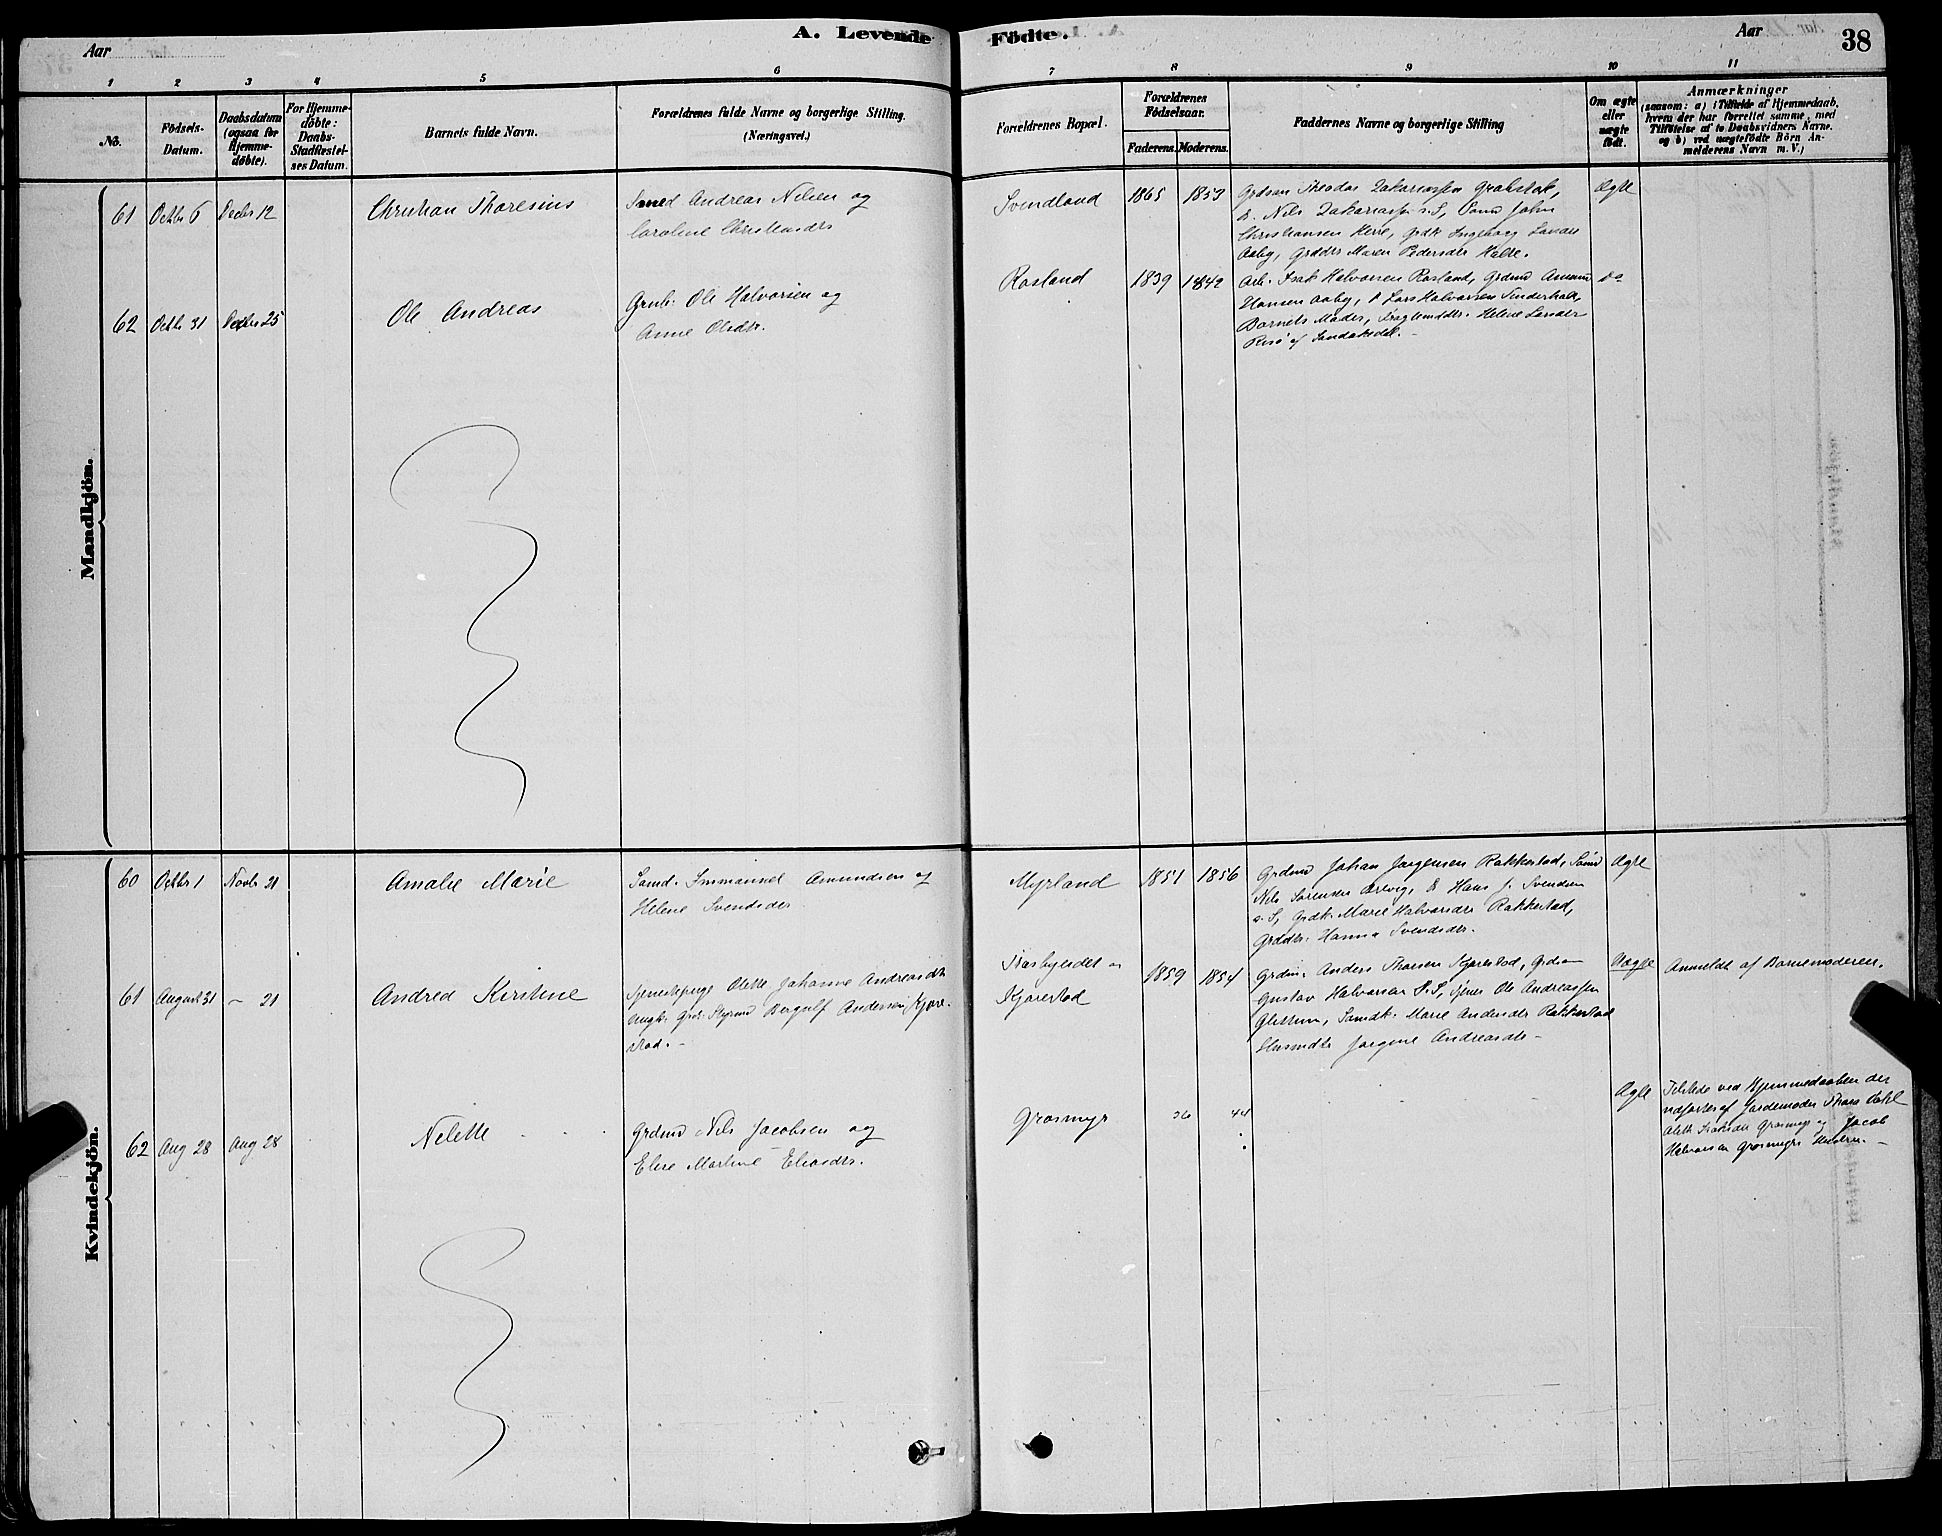 A. Levende Födte.
Aar
Aar
38
1 2 3 4 5 6 7 8 9 10 11
No.
Födsels-Datum.
Daabsdatum (ogsaa for Hjemme-döbte).
For Hjemme-döbte: Daabs-Stadfæstel-ses Datum.
Barnets fulde Navn.
Forældrenes fulde Navne og borgerlige Stilling. (Næringsvei.)
Forældrenes Bopæl.
Forældrenes Födselsaar.
Faderens. Moderens.
Faddernes Navne og borgerlige Stilling
Om ægte eller uægte födt.
Anmærkninger
(saasom: a) i Tilfælde af Hjemmedaab,
hvem der har forrettet samme, med
Tilföielse af to Daabsvidners Navne.
og b) ved uægtefödte Börn An-
melderens Navn m. V.)
Mandkjön.
61 Octbr 6 Decbr 12
Christian Thoresius
Smed Andreas Nilsen og
Caroline Christensdr
Svendland
1865 1853
Grdsøn Theodor Zakariassen
Nils Zakariassen s. S, John
Christiansen Ingeborg
Aaby, Grddtr Maren Pedersdtr Halde.
Ægte
62 Octbr 31 Decbr 25
Ole Andreas
Grub. Ole Halvorsen og
Anne Olsdtr.
Rosland
1839 1842
Arb. Isak Halvorsen Rosland, Grdmd
Hansen Aaby, Lars Halvorsen
Barnets Moder, Helene
Risö af Sandøkedal.
do
Kvindekjön.
60 Octbr 1 Novbr 21
Amalie Marie
Sømd. Immanuel Amundsen og
Helene Svendsdr
Myrland
1851 1856
Grdmd Johan Jørgensen Rakkestad, Sømd
Nils Sørensen Hans J. Svendsen
s. S, Grdk. Marie Halvorsdr Rakkestad,
Grddtr. Hanna Svendsdr.
Ægte
61 August 31 – 21
Andrea Kirstine
Tjenestepige Olette Johanne Andreasdtr
Ungk. Styrmd Bergulf Andersen Kjøre-
stad. –
Kjørestad
1859 1854
Grdm. Anders Thorsen Kjørestad, Grdsøn
Gustav Halvorsen s. S, Tjener Ole Andreassen
Sømdk. Marie Andersdtr Rakkestad
Husmdtr Jørgine Andreasdtr –
Uægte
Anmeldt af Barnemoderen.
62 Aug 28 Aug 28
Nelette
Grdmd Nils Jacobsen og
Elise Martine Eliasdtr.
Grosmyr
36 44
Ægte
Tilstede ved Hjemmedaaben der
udførtes af Jordemoder Dahl
Olette Isaksdtr Grosmyr og Jacob
Halvorsen Grosmyr